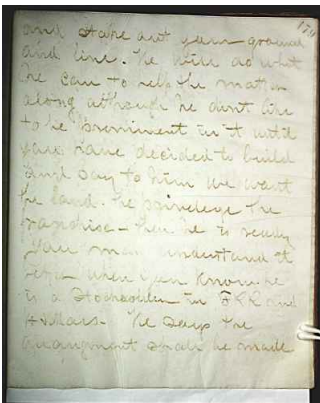 and stake out your ground
and line. He will do what
he can to help the matter
along although he dont like
to be prominent in it until
you have decided to build
and say to him we want
the land. the priviledge the
franchise - then he is ready
You may understand it
when you know he
is a Stockholder in and
He says the
arrangement shall be made